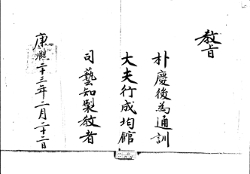 教旨
朴慶後為通訓
大夫行成均館
司藝知製教者
康熙二十三年二月二十二日